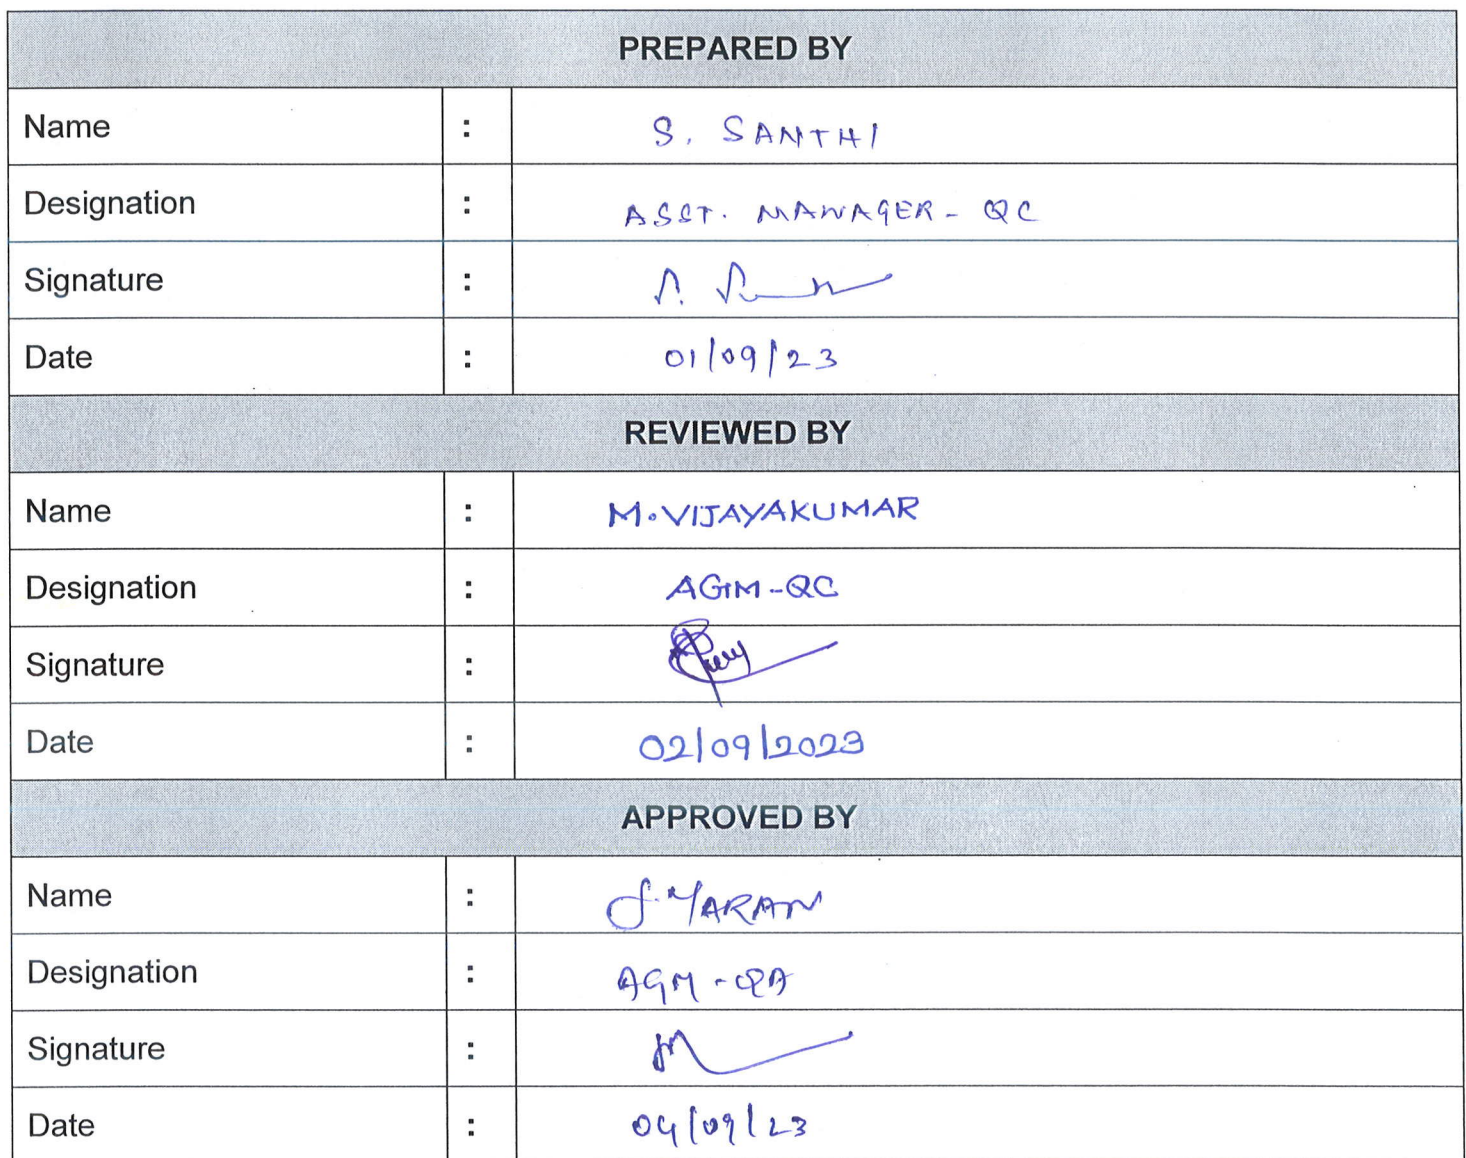 PREPARED BY
Name : S. SANTHI
Designation : ASST. MANAGER - QC
Signature :
Date : 01/09/23
REVIEWED BY
Name : M. VIJAYAKUMAR
Designation : AGM - QC
Signature :
Date : 02/09/2023
APPROVED BY
Name : J. MARAN
Designation : AGM - QA
Signature :
Date : 04/09/23